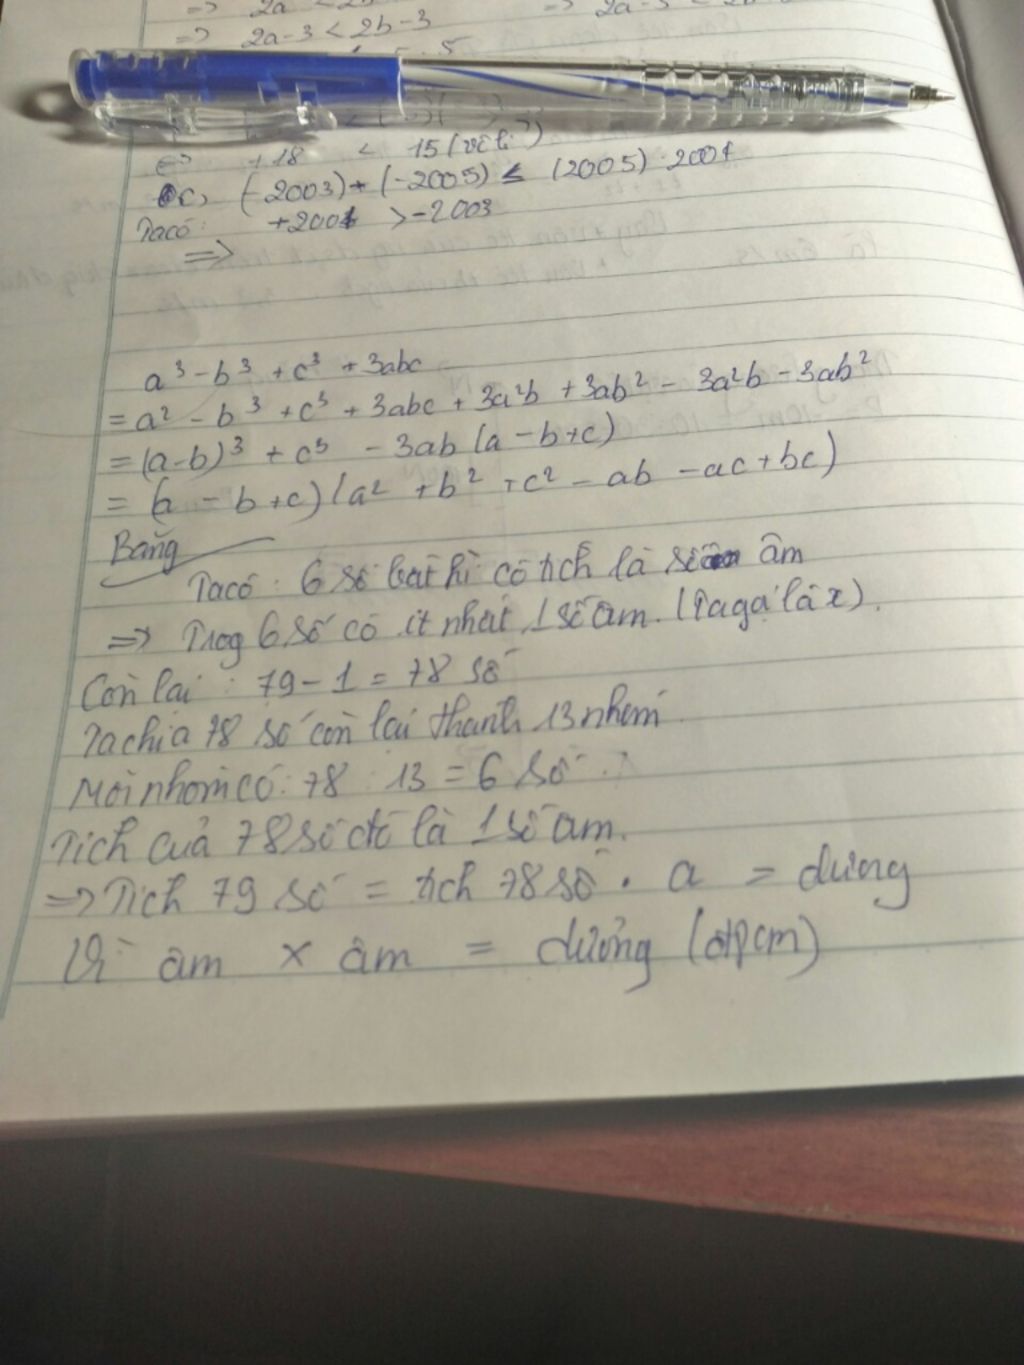 => 2a
=> 2a-3 < 2b-3
+18 < 15 (vô lí)
c, (-2003)+(-2005) ≤ (2005).2001
Ta có: +2001 > -2003
=>
a³ - b³ + c³ + 3abc
= a² - b³ + c³ + 3abc + 3a²b + 3ab² - 3a²b - 3ab²
= (a-b)³ + c³ - 3ab (a-b+c)
= (a - b + c) (a² + b² + c² - ab - ac + bc)
Bằng
Ta có: 6 số bất kì có tích là số âm
=> Trog 6 số có ít nhất 1 số âm. (Ta gọi là x).
Còn lại: 79 - 1 = 78 số
Ta chia 78 số còn lại thành 13 nhóm
Mỗi nhóm có: 78 : 13 = 6 số
Tích của 78 số đó là 1 số âm.
=> Tích 79 số = tích 78 số . a = dương
Vì âm x âm = dương (đpcm)